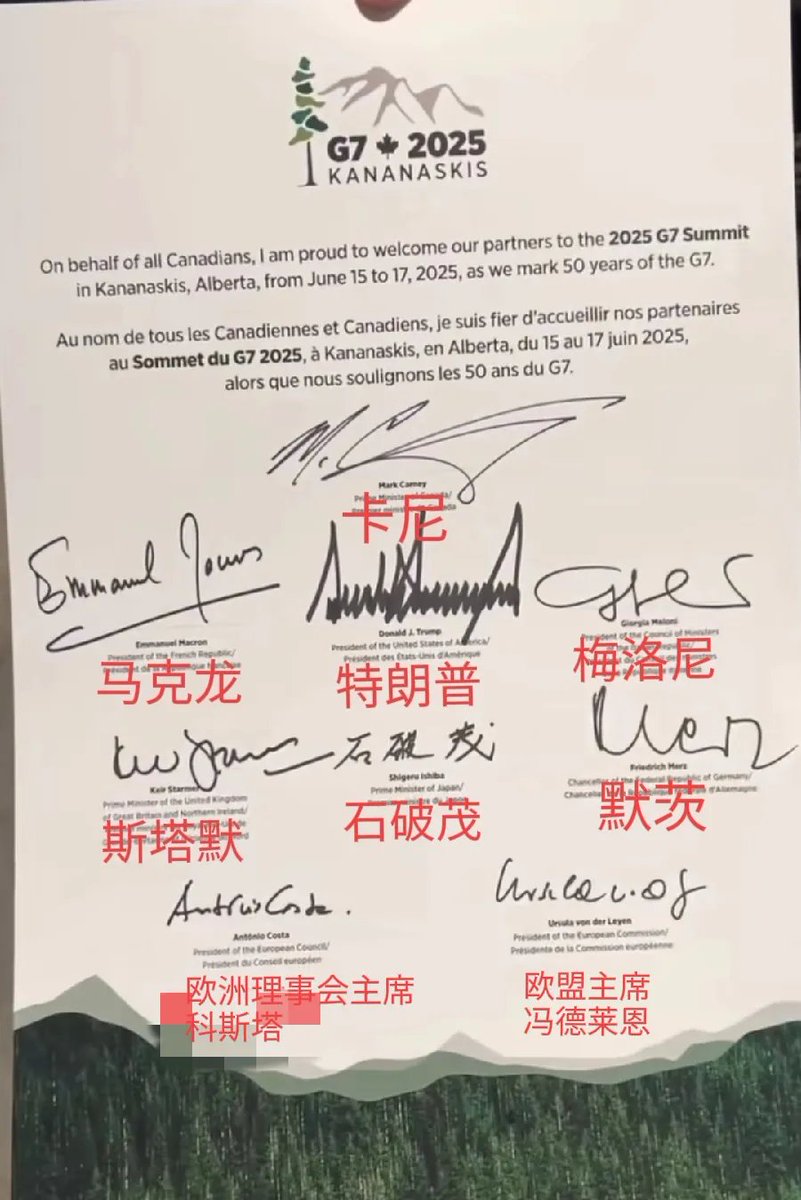 G7 2025
KANANASKIS
On behalf of all Canadians, I am proud to welcome our partners to the 2025 G7 Summit
in Kananaskis, Alberta, from June 15 to 17, 2025, as we mark 50 years of the G7.
Au nom de tous les Canadiennes et Canadiens, je suis fier d'accueillir nos partenaires
au Sommet du G7 2025, à Kananaskis, en Alberta, du 15 au 17 juin 2025,
alors que nous soulignons les 50 ans du G7.
M. C
Mark Carney
Prime Minister of Canada/
Premier ministre Canada
卡尼
Emmanuel
Emmanuel Macron
President of the French Republic/
马克龙
Donald J. Trump
President of the United States of America/
Président des États-Unis d'Amérique
特朗普
Giorgia Meloni
President of the Council of Ministers
梅洛尼
Keir Starmer
Prime Minister of the United Kingdom
of Great Britain and Northern Ireland/
斯塔默
石破茂
Shigeru Ishiba
Prime Minister of Japan/
石破茂
Merz
Friedrich Merz
Chancellor of the Federal Republic of Germany/
默茨
António Costa
President of the European Council/
Président du Conseil européen
欧洲理事会主席
科斯塔
Ursula von der Leyen
President of the European Commission/
Présidente de la Commission européenne
欧盟主席
冯德莱恩